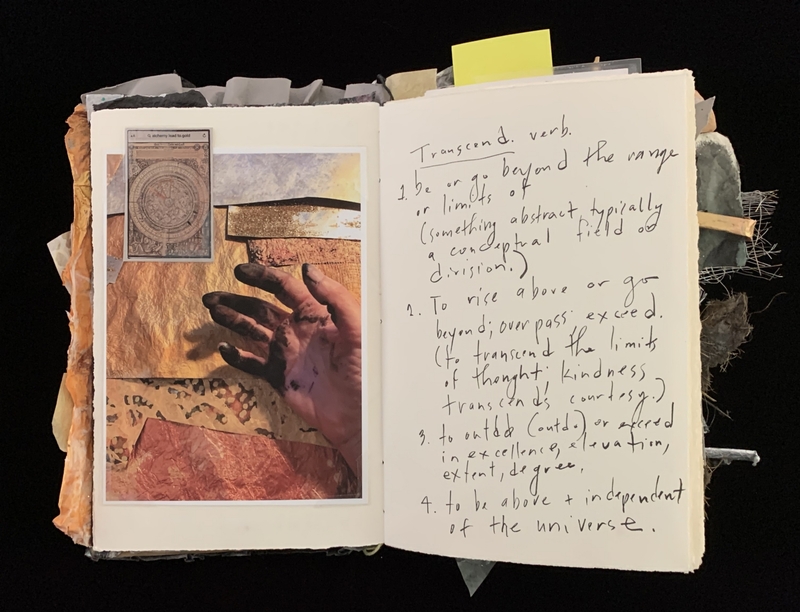 alchemy lead to gold
Transcend. verb.
1. be or go beyond the range
or limits of
(something abstract, typically
a conceptual field or
division.)
2. To rise above or go
beyond; overpass; exceed.
(to transcend the limits
of thought; kindness
transcends courtesy.)
3. to outdo (outdo) or exceed
in excellence, elevation,
extent, degree.
4. to be above + independent
of the universe.